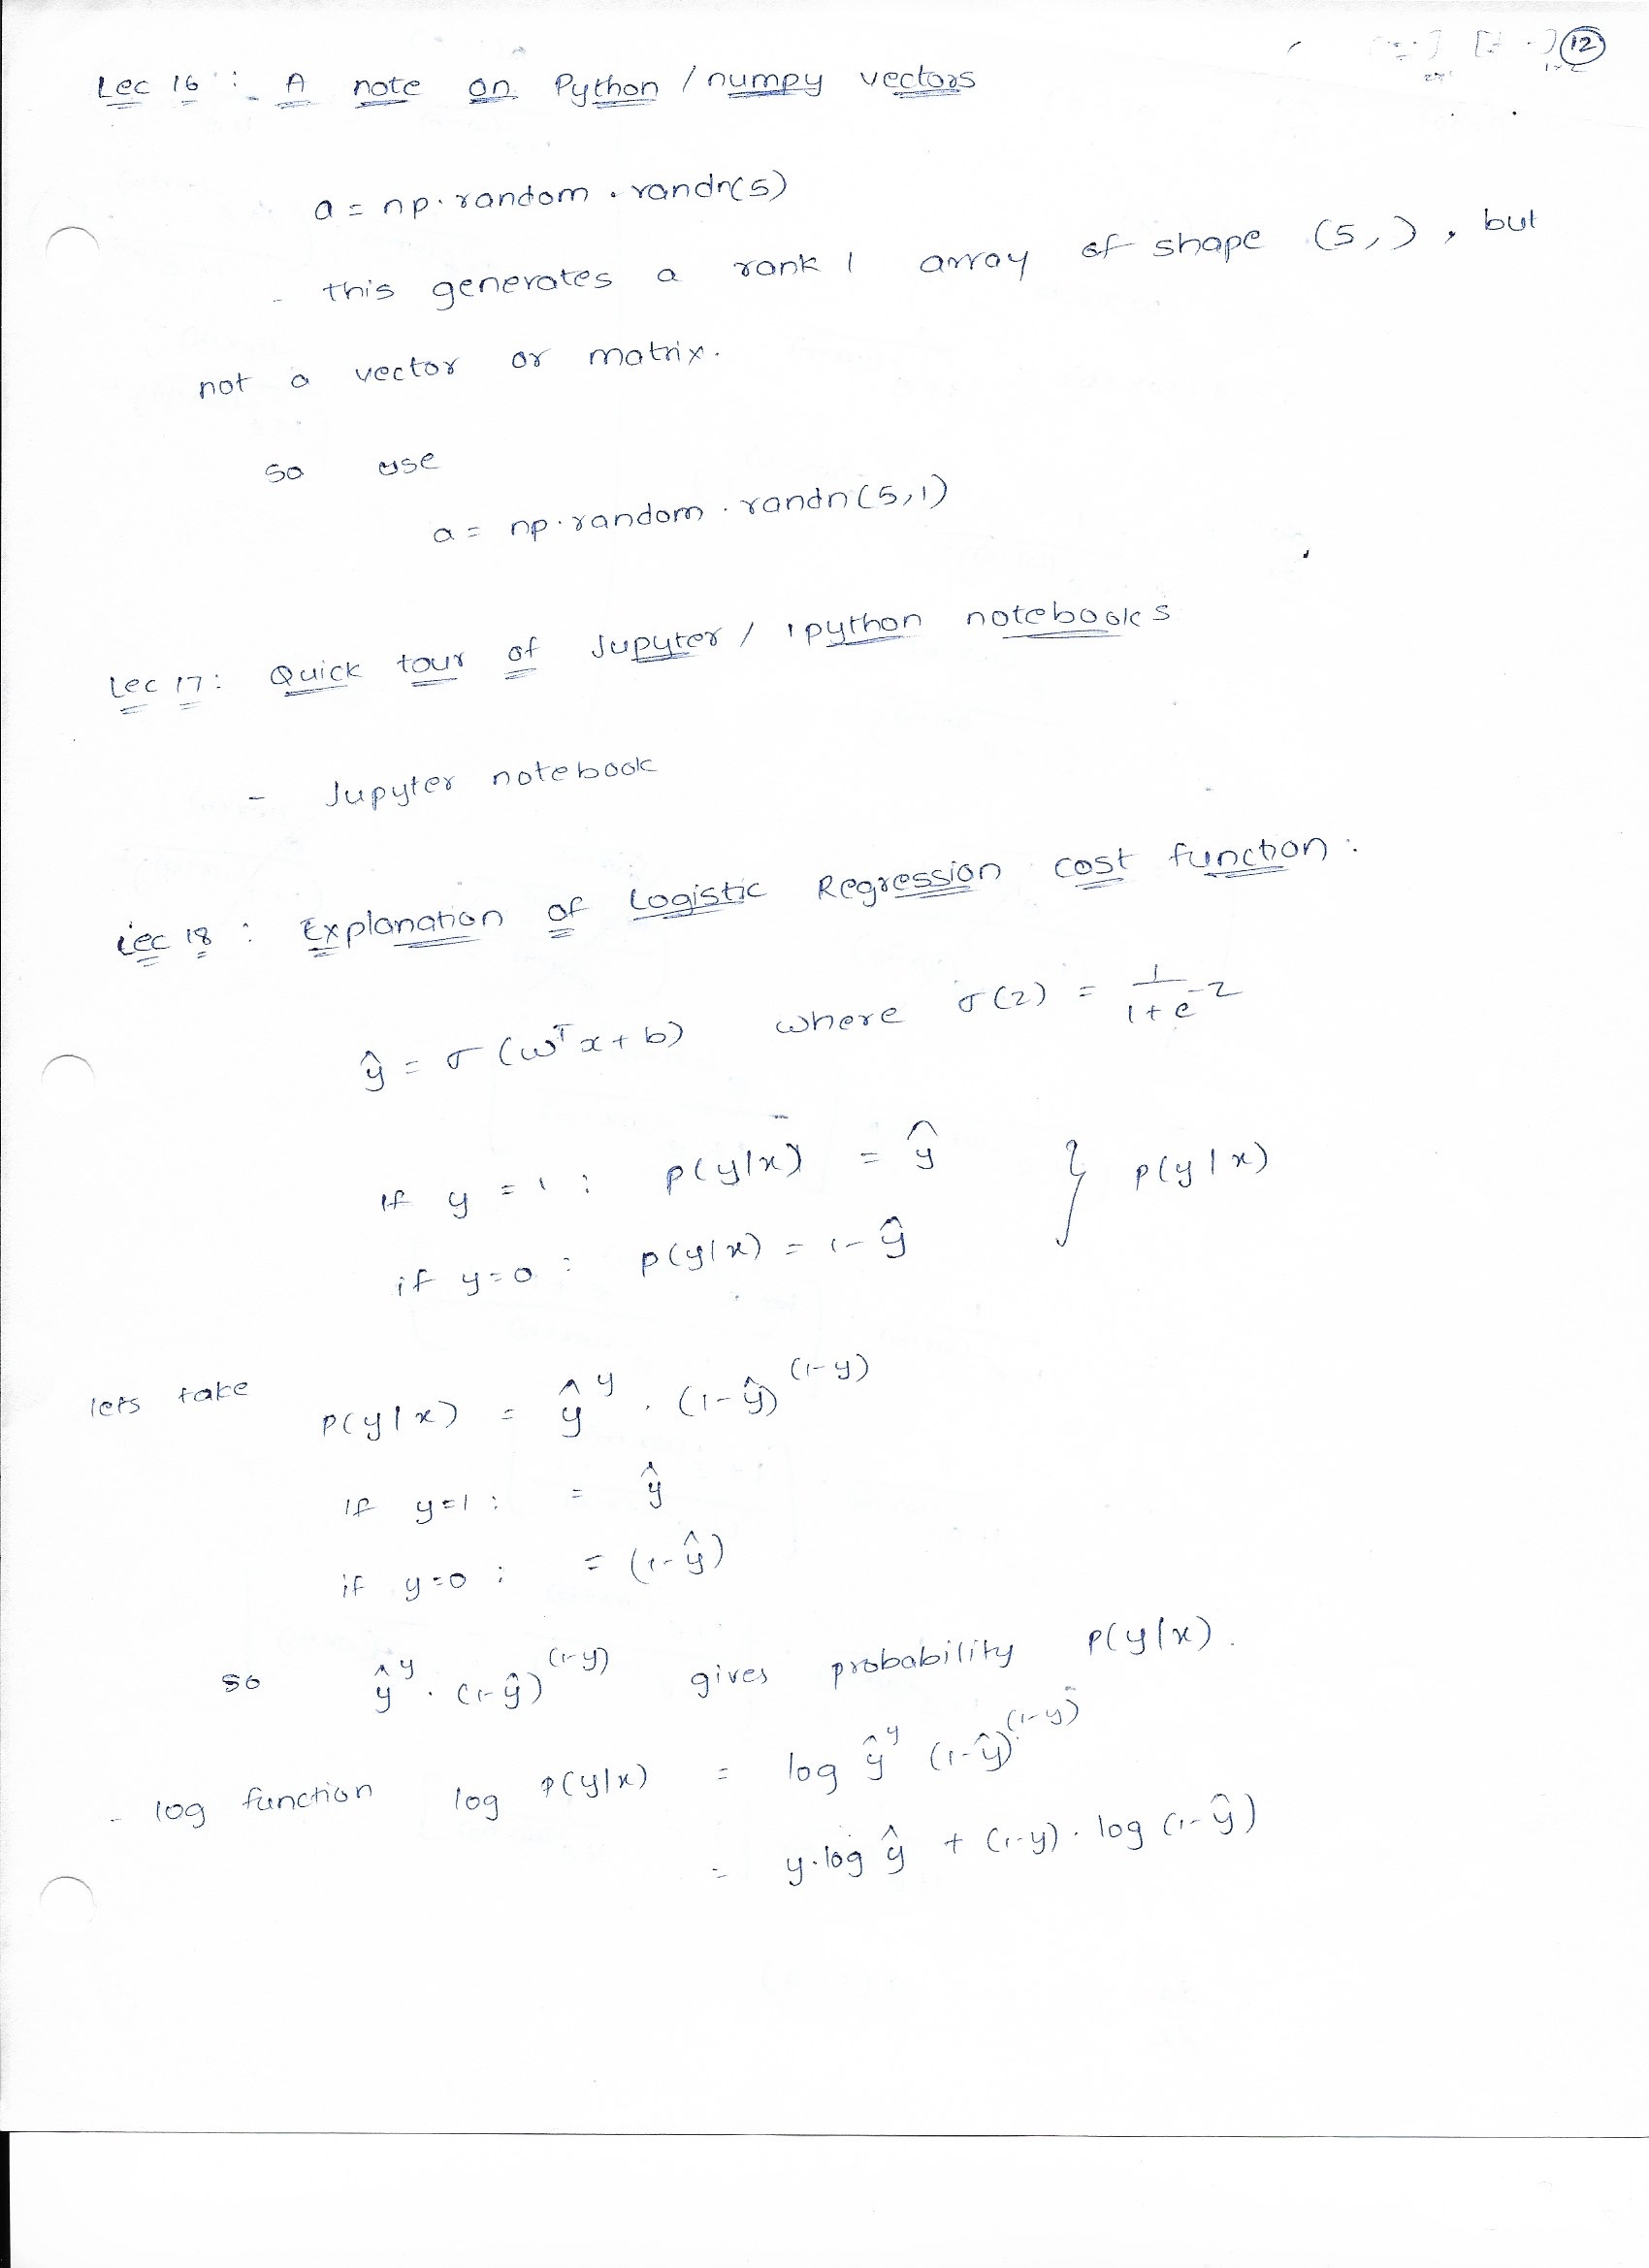 12
Lec 16 : A note on Python / numpy vectors
a = np.random.randn(5)
- this generates a rank 1 array of shape (5,), but
not a vector or matrix.
so use
a = np.random.randn(5,1)
Lec 17: Quick tour of Jupyter / ipython notebooks
- Jupyter notebook
Lec 18 : Explanation of Logistic Regression cost function :
ŷ = σ(wᵀx + b) where σ(z) = 1/(1+e^-z)
If y = 1 : p(y|x) = ŷ } p(y|x)
if y=0 : p(y|x) = 1-ŷ
lets take p(y|x) = ŷ^y . (1-ŷ)^(1-y)
If y=1 : = ŷ
if y=0 : = (1-ŷ)
so ŷ^y . (1-ŷ)^(1-y) gives probability p(y|x).
- log function log p(y|x) = log ŷ^y (1-ŷ)^(1-y)
= y.log ŷ + (1-y).log (1-ŷ)